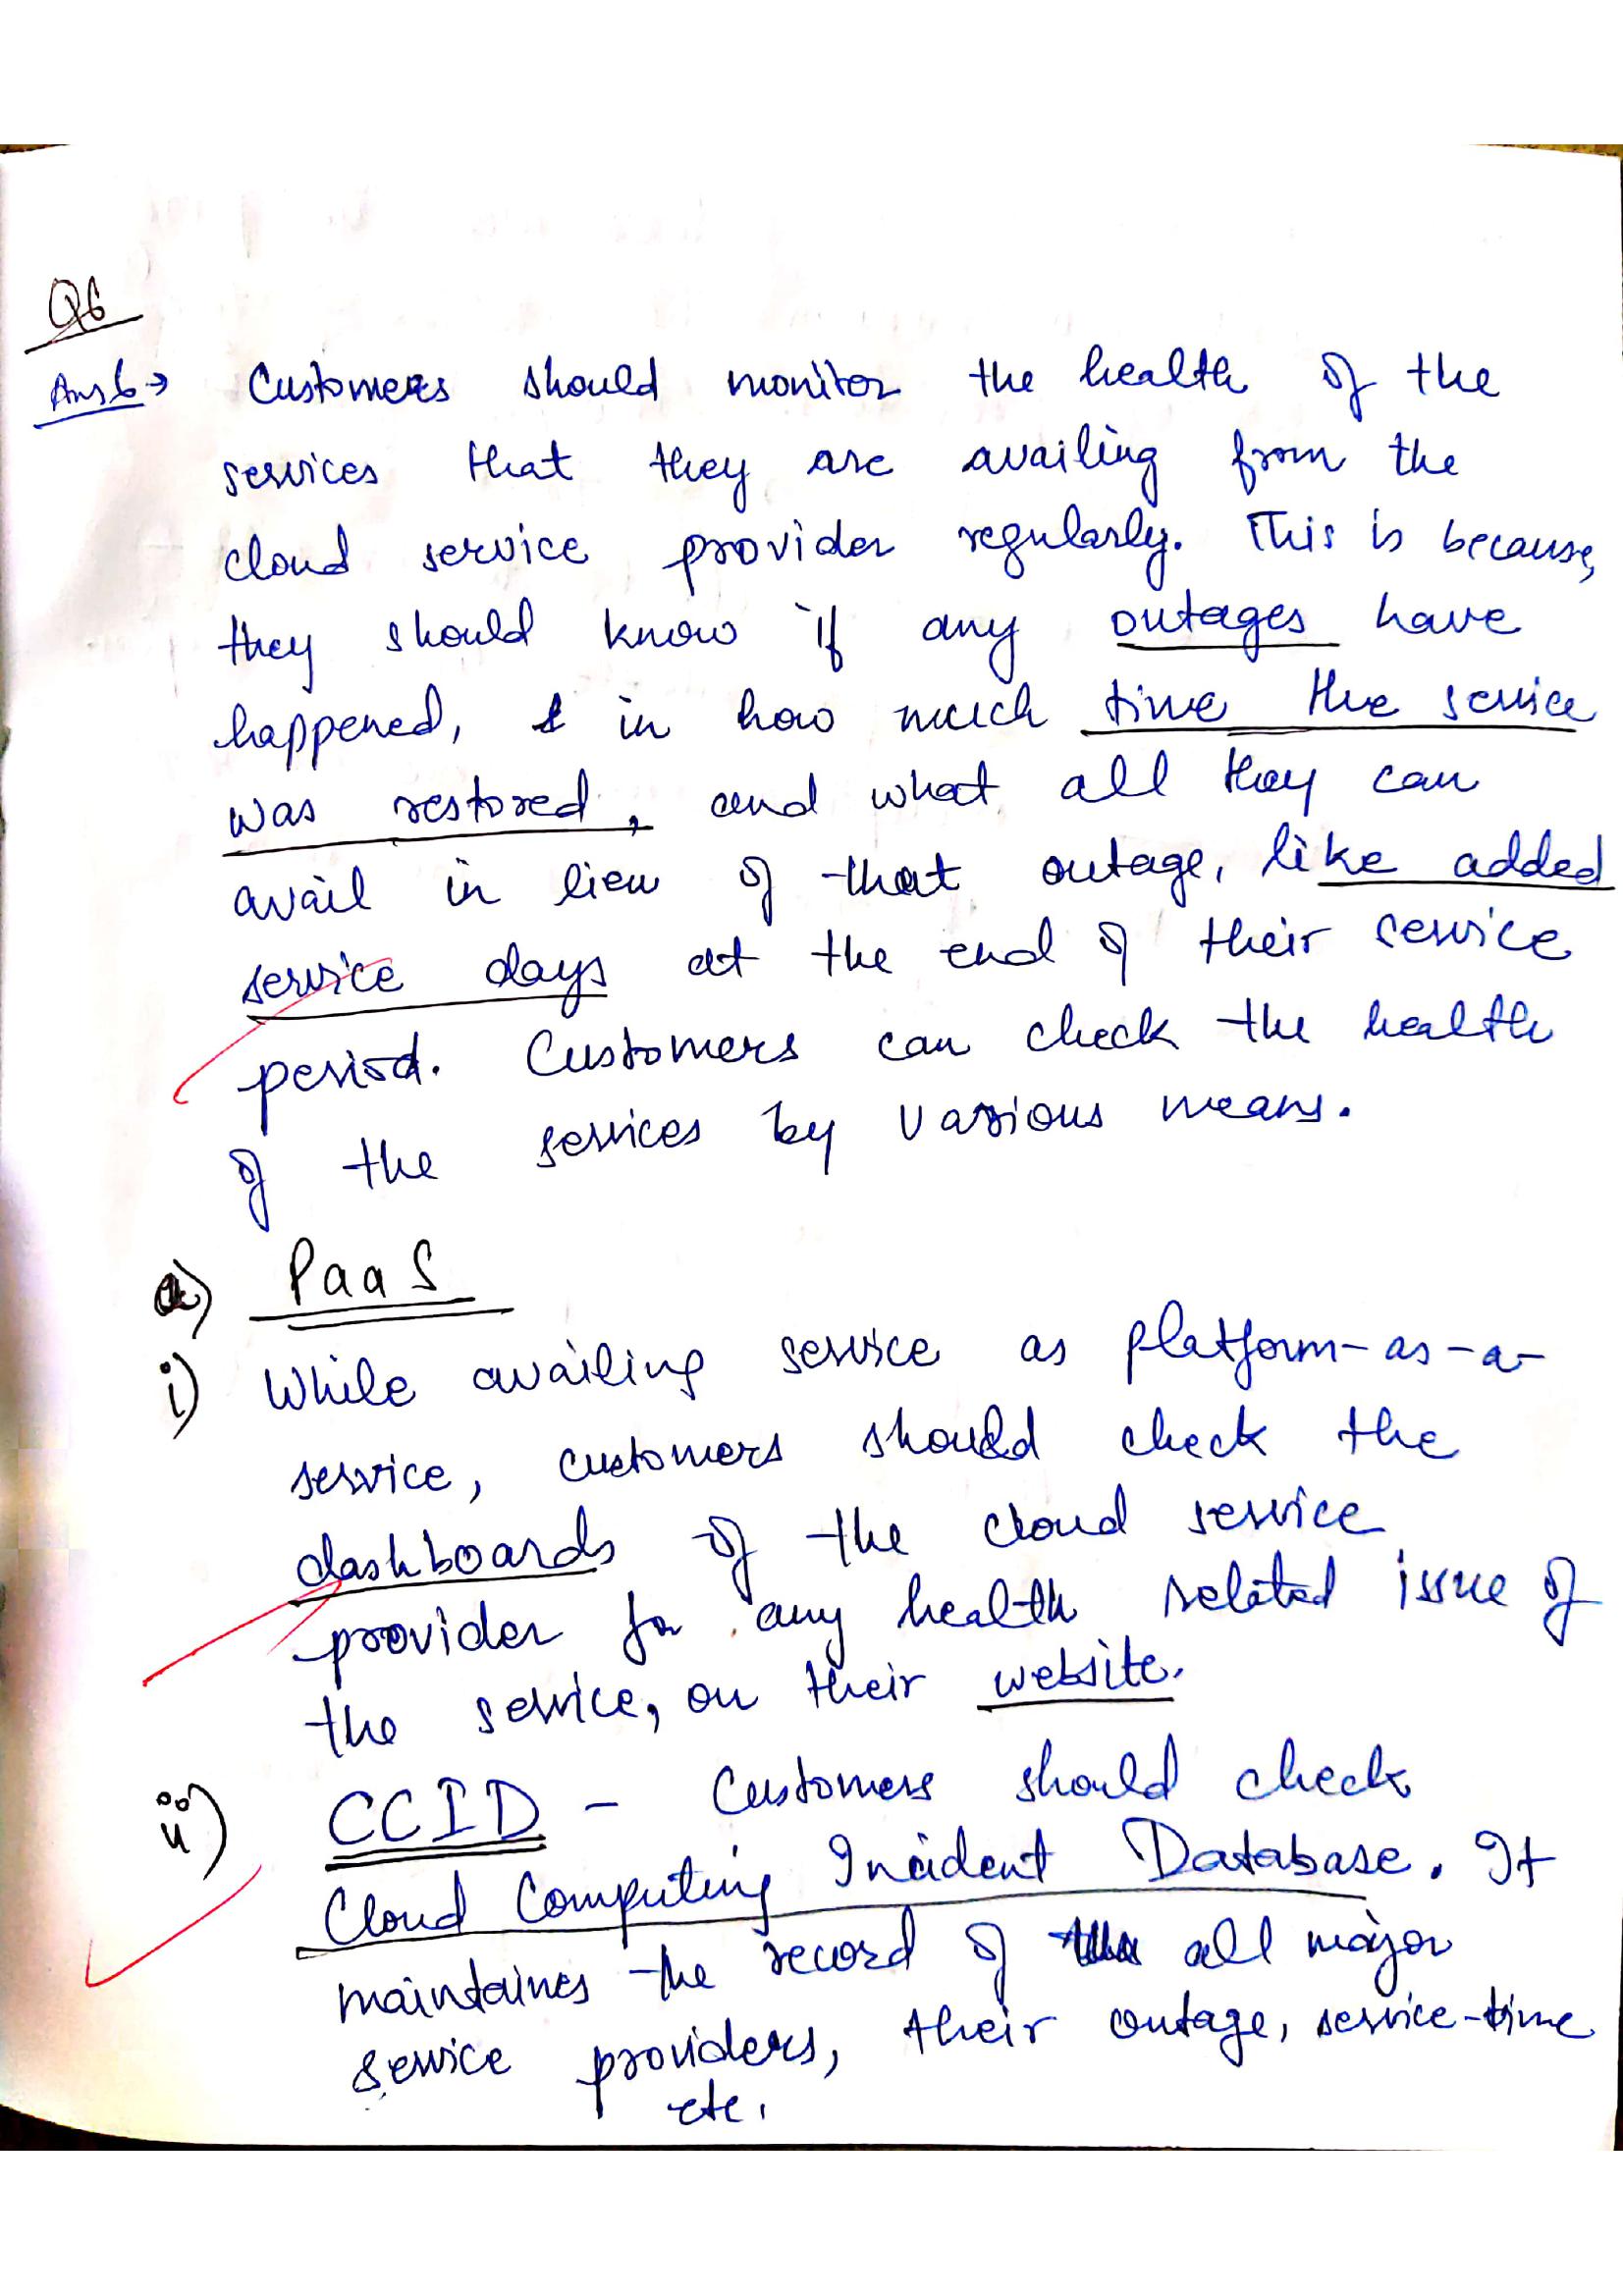 Q6
Ans6→ Customers should monitor the health of the
services that they are availing from the
cloud service provider regularly. This is because,
they should know if any outages have
happened, & in how much time the service
was restored, and what all they can
avail in lieu of that outage, like added
service days at the end of their service
period. Customers can check the health
of the services by various means.
a) PaaS
i) While availing service as platform-as-a-
service, customers should check the
dashboards of the cloud service
provider for any health related issue of
the service, on their website.
ii) CCID - Customers should check
Cloud Computing Incident Database. It
maintaines the record of all major
service providers, their outage, service-time
etc.